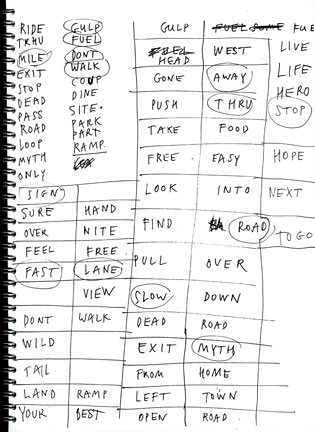 RIDE GULP
THRU FUEL
MILE DONT
EXIT WALK
STOP COUP
DEAD DINE
PASS SITE
ROAD PARK
LOOP PART
MYTH RAMP
ONLY
SIGN
SURE HAND
OVER NITE
FEEL FREE
FAST LANE
VIEW
DONT WALK
WILD
TAIL
LAND RAMP
YOUR BEST
GULP FUEL SOME FUE
FUEL
HEAD WEST
GONE AWAY
PUSH THRU
TAKE FOOD
FREE EASY
LOOK INTO
FIND ROAD
PULL OVER
SLOW DOWN
DEAD ROAD
EXIT MYTH
FROM HOME
LEFT TOWN
OPEN ROAD
LIVE
LIFE
HERO
STOP
HOPE
NEXT
TO GO